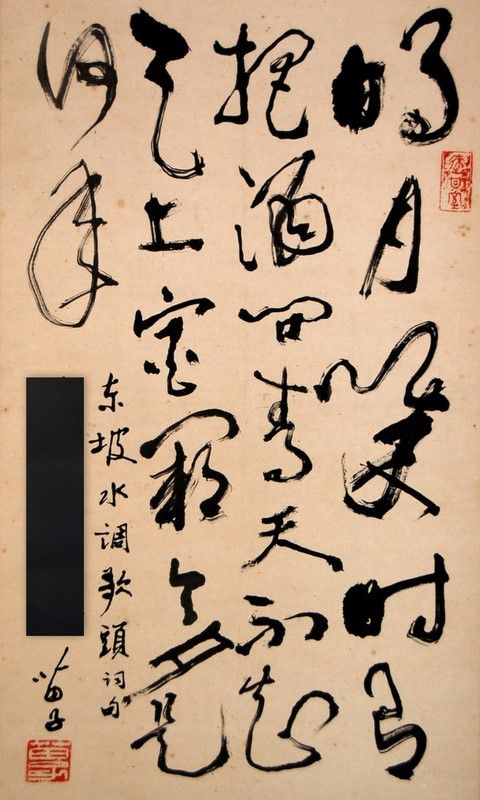 明月幾时有
把酒问青天不知
天上宫阙今夕是
何年
东坡水调歌頭词句
苗子